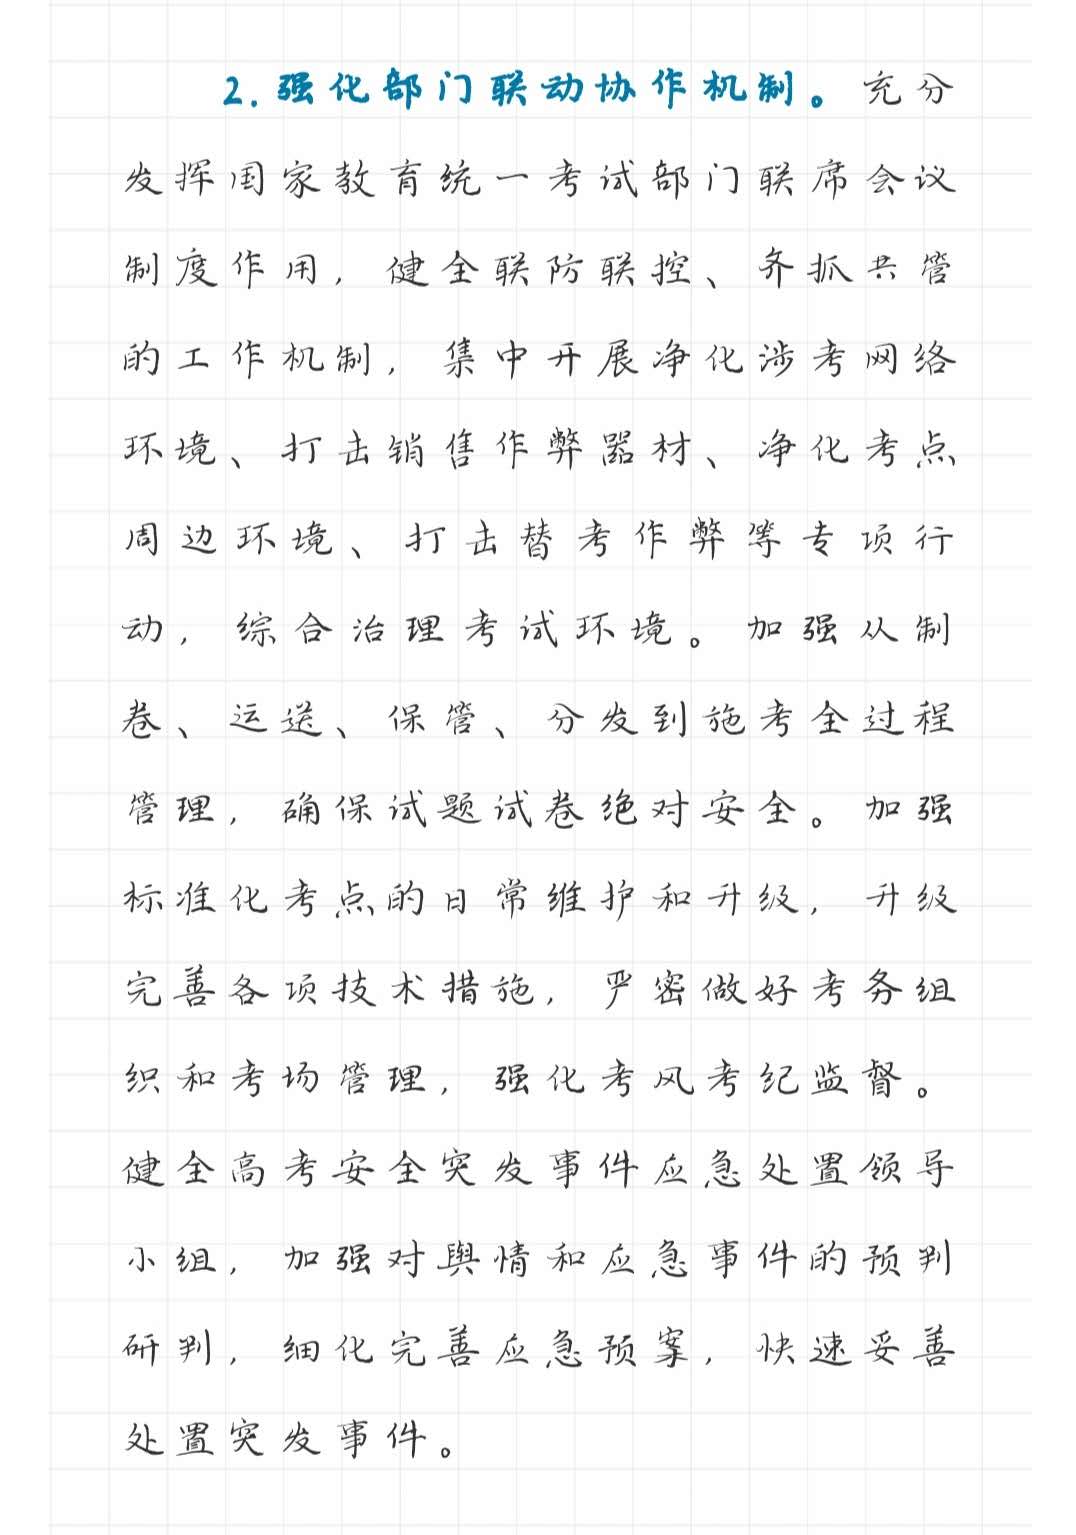 2.强化部门联动协作机制。充分
发挥国家教育统一考试部门联席会议
制度作用，健全联防联控、齐抓共管
的工作机制，集中开展净化涉考网络
环境、打击销售作弊器材、净化考点
周边环境、打击替考作弊等专项行
动，综合治理考试环境。加强从制
卷、运送、保管、分发到施考全过程
管理，确保试题试卷绝对安全。加强
标准化考点的日常维护和升级，升级
完善各项技术措施，严密做好考务组
织和考场管理，强化考风考纪监督。
健全高考安全突发事件应急处置领导
小组，加强对舆情和应急事件的预判
研判，细化完善应急预案，快速妥善
处置突发事件。